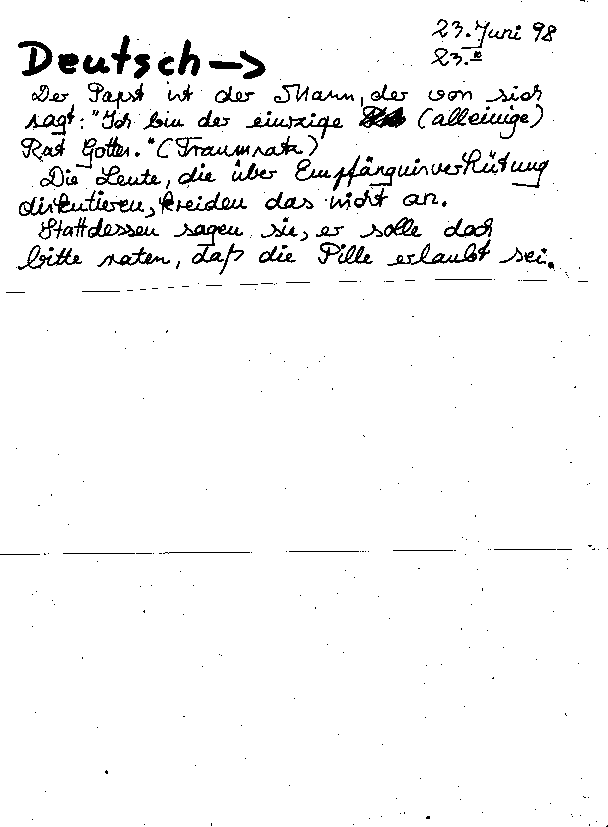 23. Juni 98
23.
Deutsch →
Der Papst ist der Mann, der von sich
sagt: "Ich bin der einzige (alleinige)
Rat Gottes." (Traumsatz)
Die Leute, die über Empfängnisverhütung
diskutieren, kreiden das nicht an.
Stattdessen sagen sie, er solle doch
bitte raten, daß die Pille erlaubt sei.